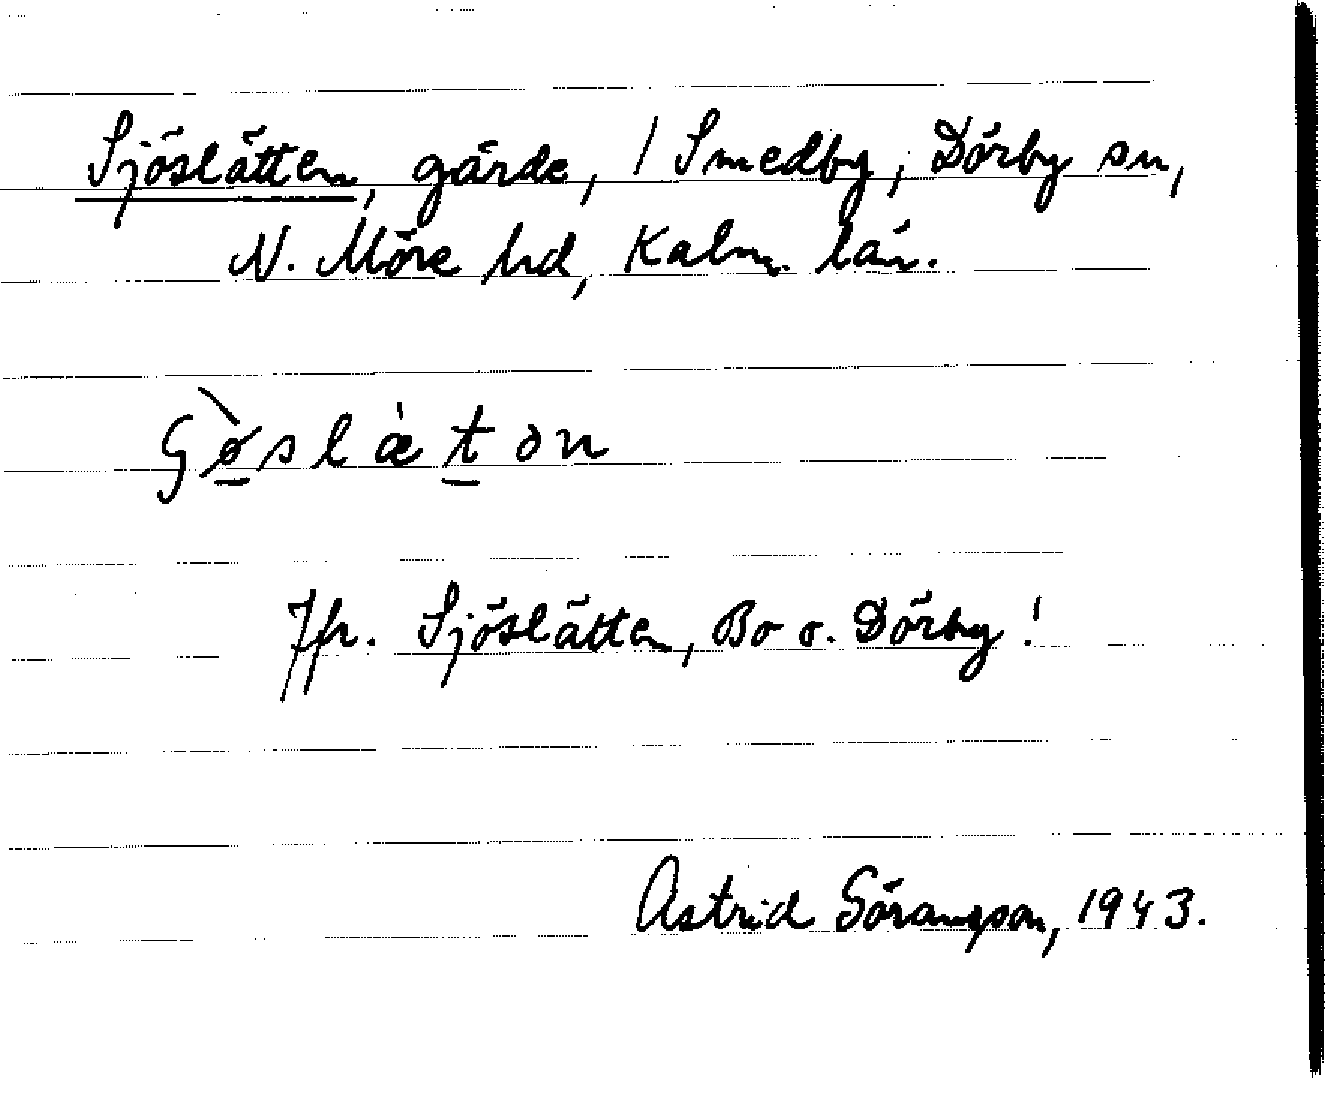 Sjöslätten, gärde, / Smedby, Dörby sn,
N. Möre hd, Kalm. län.
Jfr. Sjöslätten, Bo o. Dörby!
Astrid Göransson, 1943.